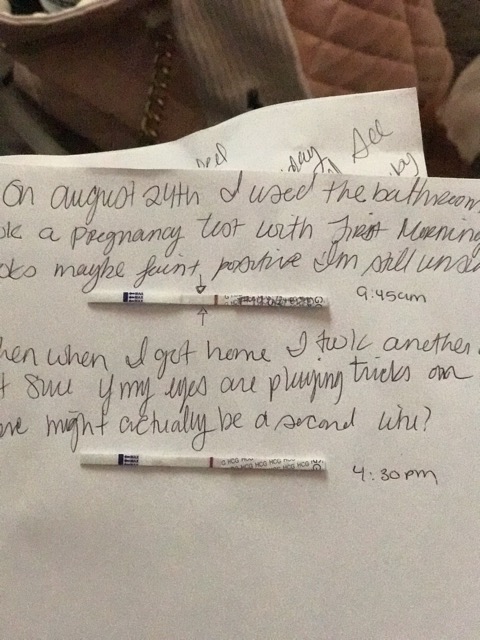 See
On august 24th I used the bathroom
a pregnancy test with First Morning
maybe faint positive I'm still
9:45am
when I got home I took another
sure if my eyes are playing tricks on
might actually be a second line?
HCG HCG HCG HCG
4:30pm